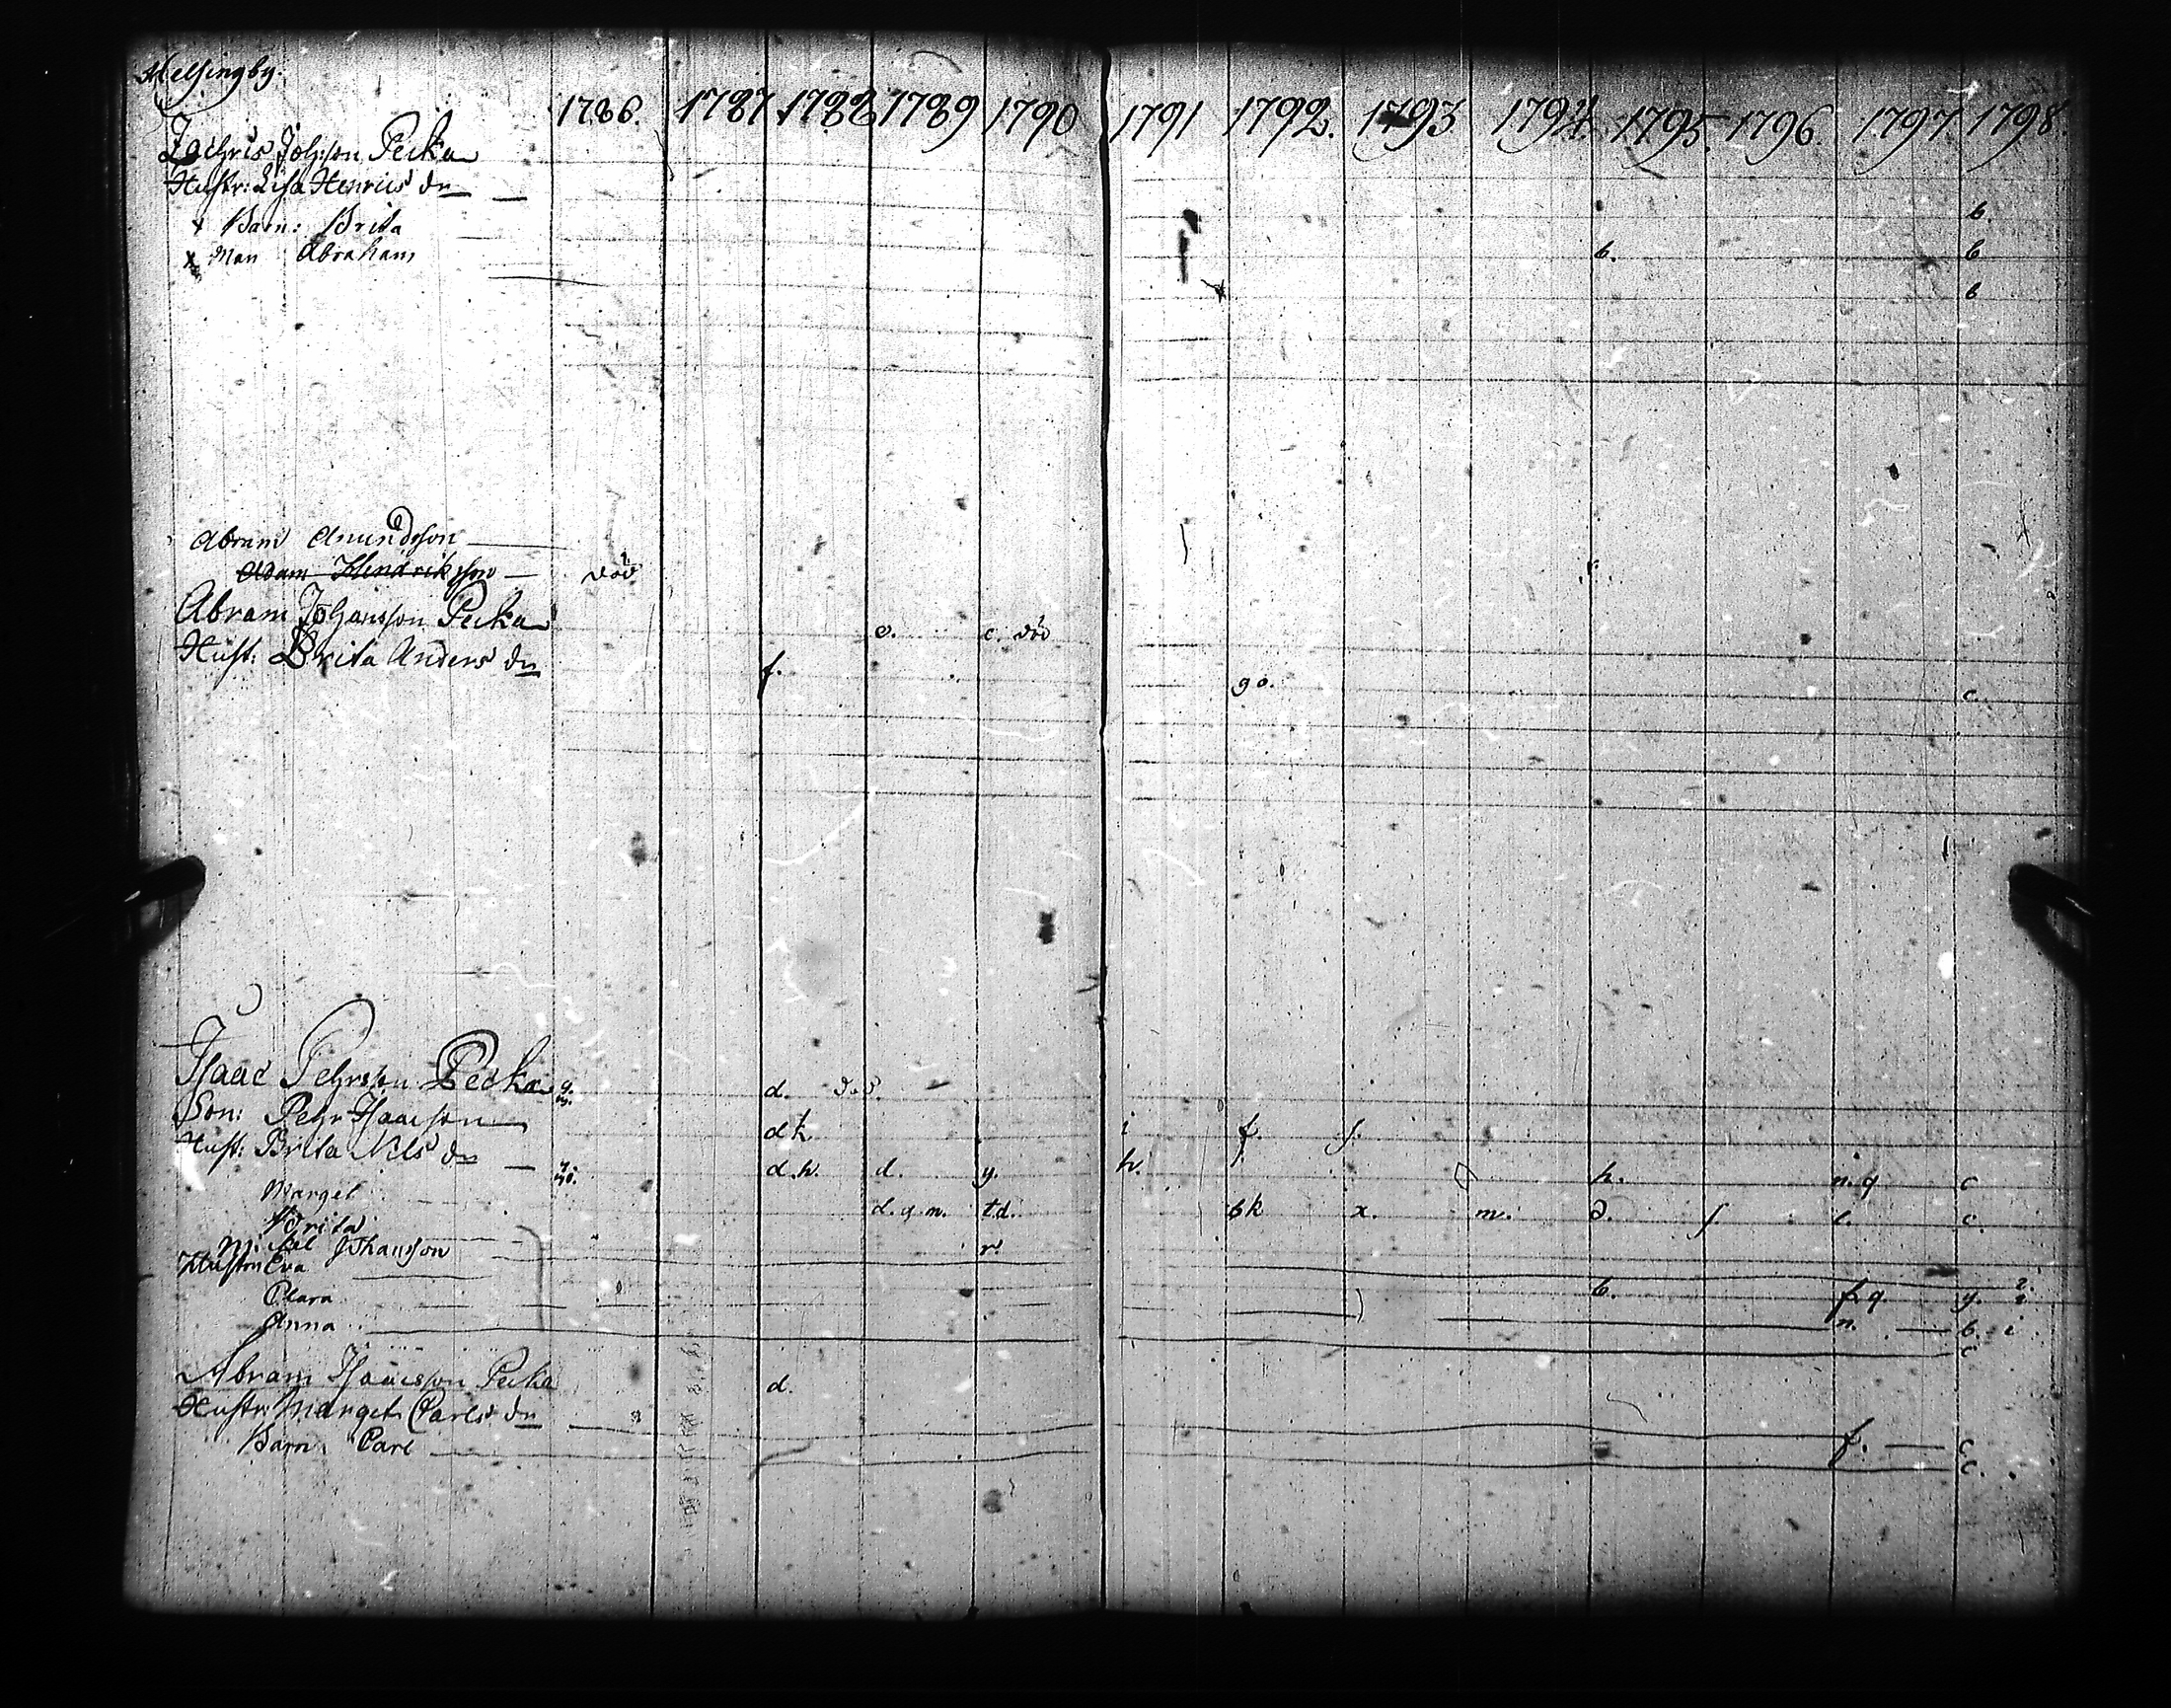 Helsingby.
1786. 1787 1788 1789 1790 1791 1792. 1793 1794 1795. 1796. 1797 1798.
Zachris Joh:son Pecka
Hustr: Lisa Henrics dr b.
Barn: Brita b. b
Man Abraham b
Abram Amundsson
Adam Hendriksson död
Abram Johansson Pecka e. c. död
Hust: Brita Anders dr f. go. c.
Isaac Pehrsson Pecka d. död.
Son: Pehr Isacsson dk. i f. f.
Hust: Brita Nils dr d.h. d. y. h. h. n. q c
Marget d. q m. td. bk x. m. d. f i. c.
Brita r
Mickel Johansson
Hustru Eva b. f. q. y. 2.
Clara n. b. i
Anna c
Abram Isacsson Pecka d.
Hustr: Marget Carls dr f. c
Barn Carl c.